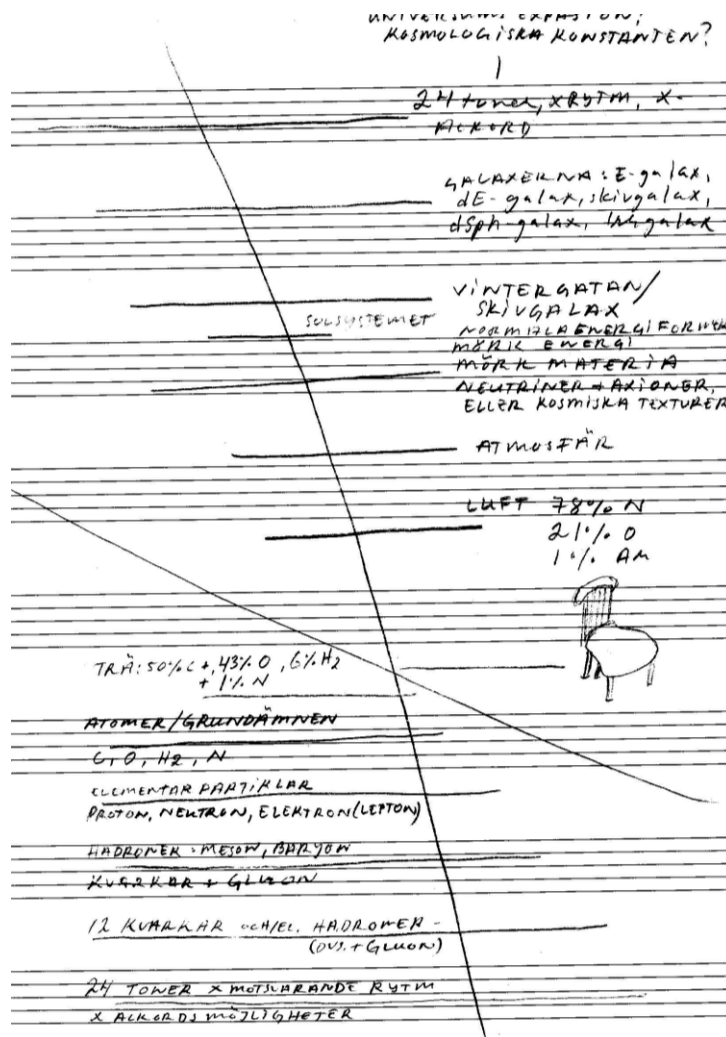 UNIVERSUMS EXPASION?
KOSMOLOGISKA KONSTANTEN?
24 toner, X RYTM, X-
ACKORD
GALAXERNA: E-galax,
dE-galax, skivgalax,
dSph-galax, Irr galax
VINTERGATAN/
SKIVGALAX
SOLSYSTEMET
NORMALA ENERGIFORMER
MÖRK ENERGI
MÖRK MATERIA
NEUTRINER + AXIONER,
ELLER KOSMISKA TEXTURER
ATMOSFÄR
LUFT 78% N
21% O
1% AR
TRÄ: 50% C +, 43% O, 6% H2
+ 1% N
ATOMER/GRUNDÄMNEN
C, O, H2, N
ELEMENTARPARTIKLAR
PROTON, NEUTRON, ELEKTRON (LEPTON)
HADRONER: MESON, BARYON
KVARKAR + GLUON
12 KVARKAR OCH/EL. HADRONER -
(DVS. + GLUON)
24 TONER X MOTSVARANDE RYTM
X ACKORDSMÖJLIGHETER